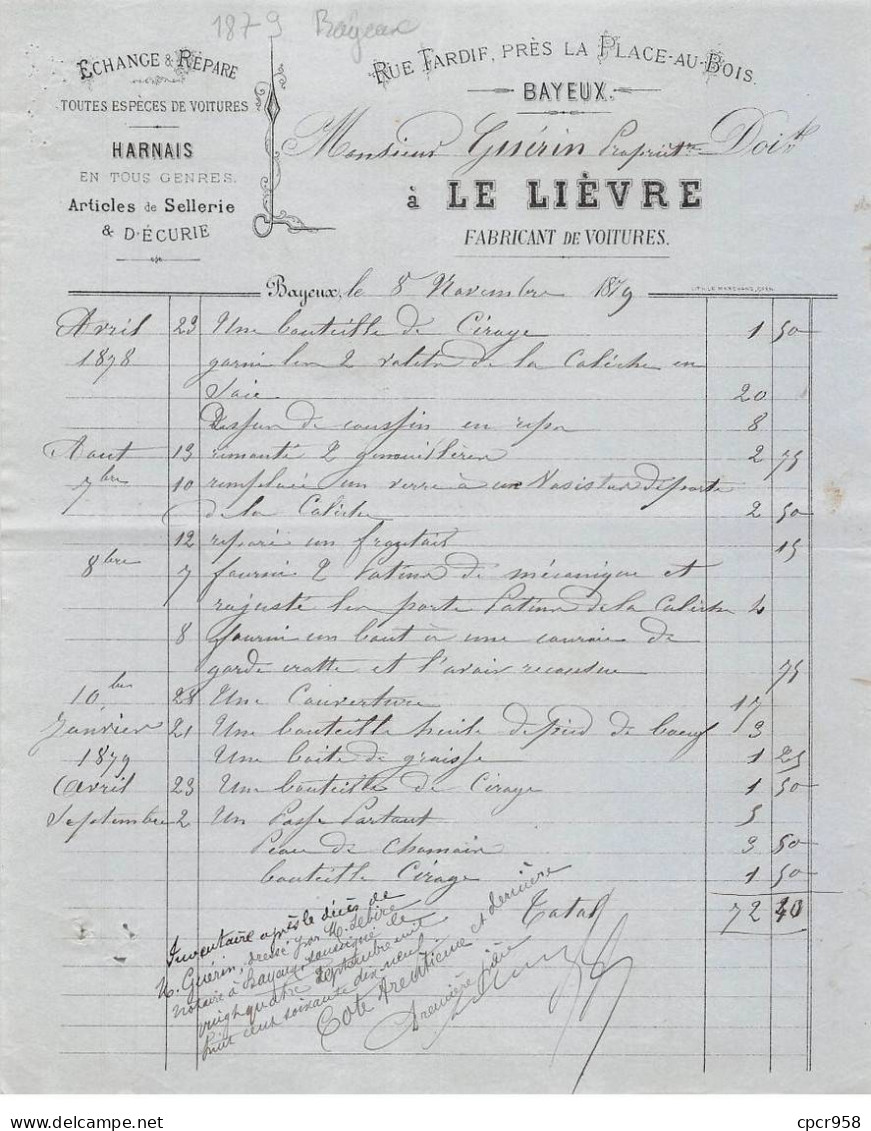 1879 Bayeux
ECHANGE & RÉPARE
TOUTES ESPÈCES DE VOITURES
HARNAIS
EN TOUS GENRES.
Articles de Sellerie
& D'ÉCURIE
RUE TARDIF, PRÈS LA PLACE-AU-BOIS.
BAYEUX.
Monsieur Guérin Propriétre Doit
à LE LIÈVRE
FABRICANT DE VOITURES.
Bayeux, le 8 Novembre 1879
LITH. LE MARCHAND, CAEN
Avril 23 Une bouteille de Cirage 1 50
1878 garni les 2 volets de la Calèche en
Soie 20
Dessus de coussin en reps 8
Aout 13 rémonté 2 genouillères 2 75
7bre 10 remplacé un verre à un Vasistas de porte
de la Calèche 2 50
12 réparé un 15
8bre 7 fourni 2 Patins de mécanique et
rajusté les porte Patins de la Calèche 4
8 fourni un bout à une courroie de
garde crotte et l'avoir recousue 75
10bre 28 Une Couverture 17
Janvier 21 Une bouteille huile de pied de boeuf 3
1879 Une boite de graisse 1 25
Avril 23 Une bouteille de Cirage 1 50
Septembre 2 Un Passe Partout 5
Peau de Chamois 3 50
bouteille Cirage 1 50
Total 72 40
Inventaire après le décès de
M. Guérin, dressé par M.
notaire à Bayeux, soussigné le
vingt quatre Septembre mil
huit cent soixante dix neuf.
Cote trentième et dernière
Dernière pièce
cpcr958